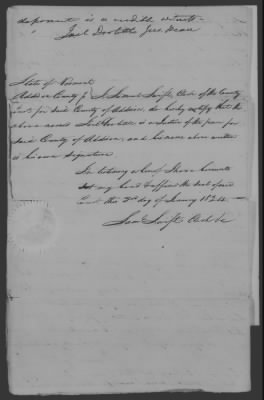 deponent is a credible witness
Joel Doolittle Jus. Peace
State of Vermont
Addison County ss I Samuel Swift, Clerk of the County
Court for said County of Addison, do hereby certify that the
above named Joel Doolittle is a Justice of the peace for
said County of Addison, and his name above written
is his own signature
In testimony whereof I have hereunto
set my hand & affixed the seal of said
Court this 3d day of January 1824
Saml Swift Clerk